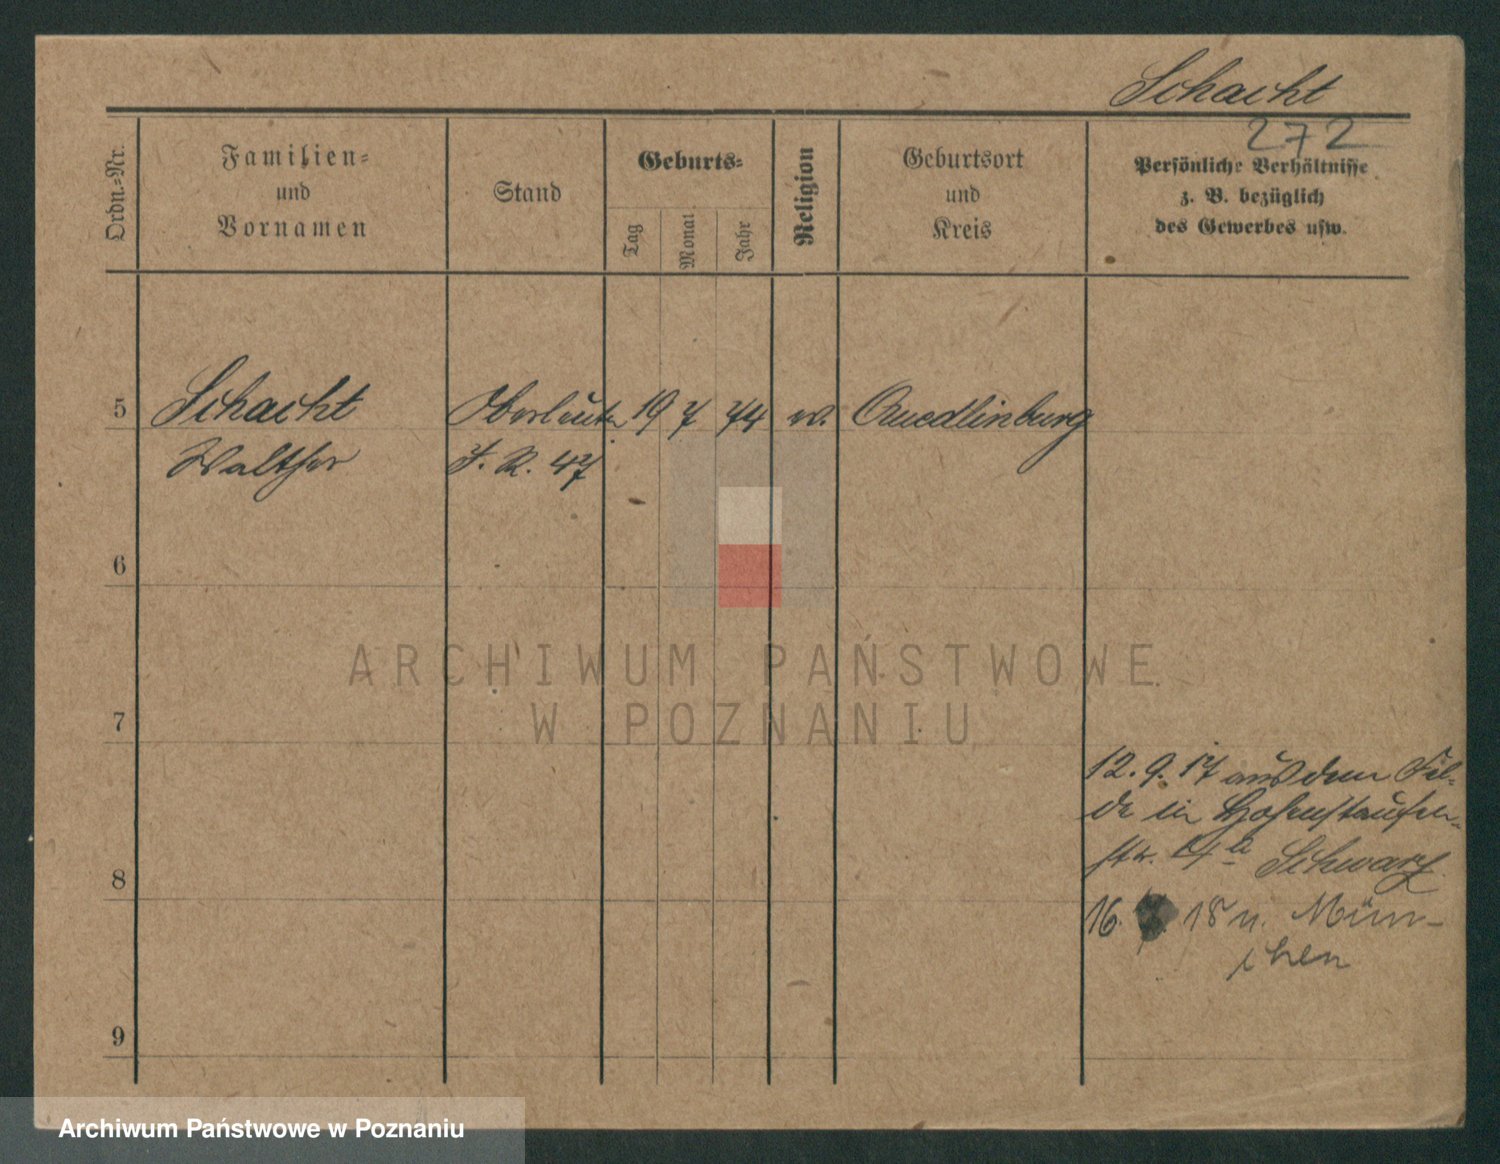 Schacht
272
Ordn.=Nr.
Familien=
und
Vornamen
Stand
Geburts=
Tag
Monat
Jahr
Religion
Geburtsort
und
Kreis
Persönliche Verhältnisse
z. B. bezüglich
des Gewerbes usw.
5 Schacht Oberleutn. 19 7 74 ev. Quedlinburg
Walther J. R. 47
6
ARCHIWUM PAŃSTWOWE
W POZNANIU
7
12. 9. 17 aus dem Fel-
de in Hohenstaufen-
str. Schwarz
8
16. 18 n. Mün-
chen
9
Archiwum Państwowe w Poznaniu